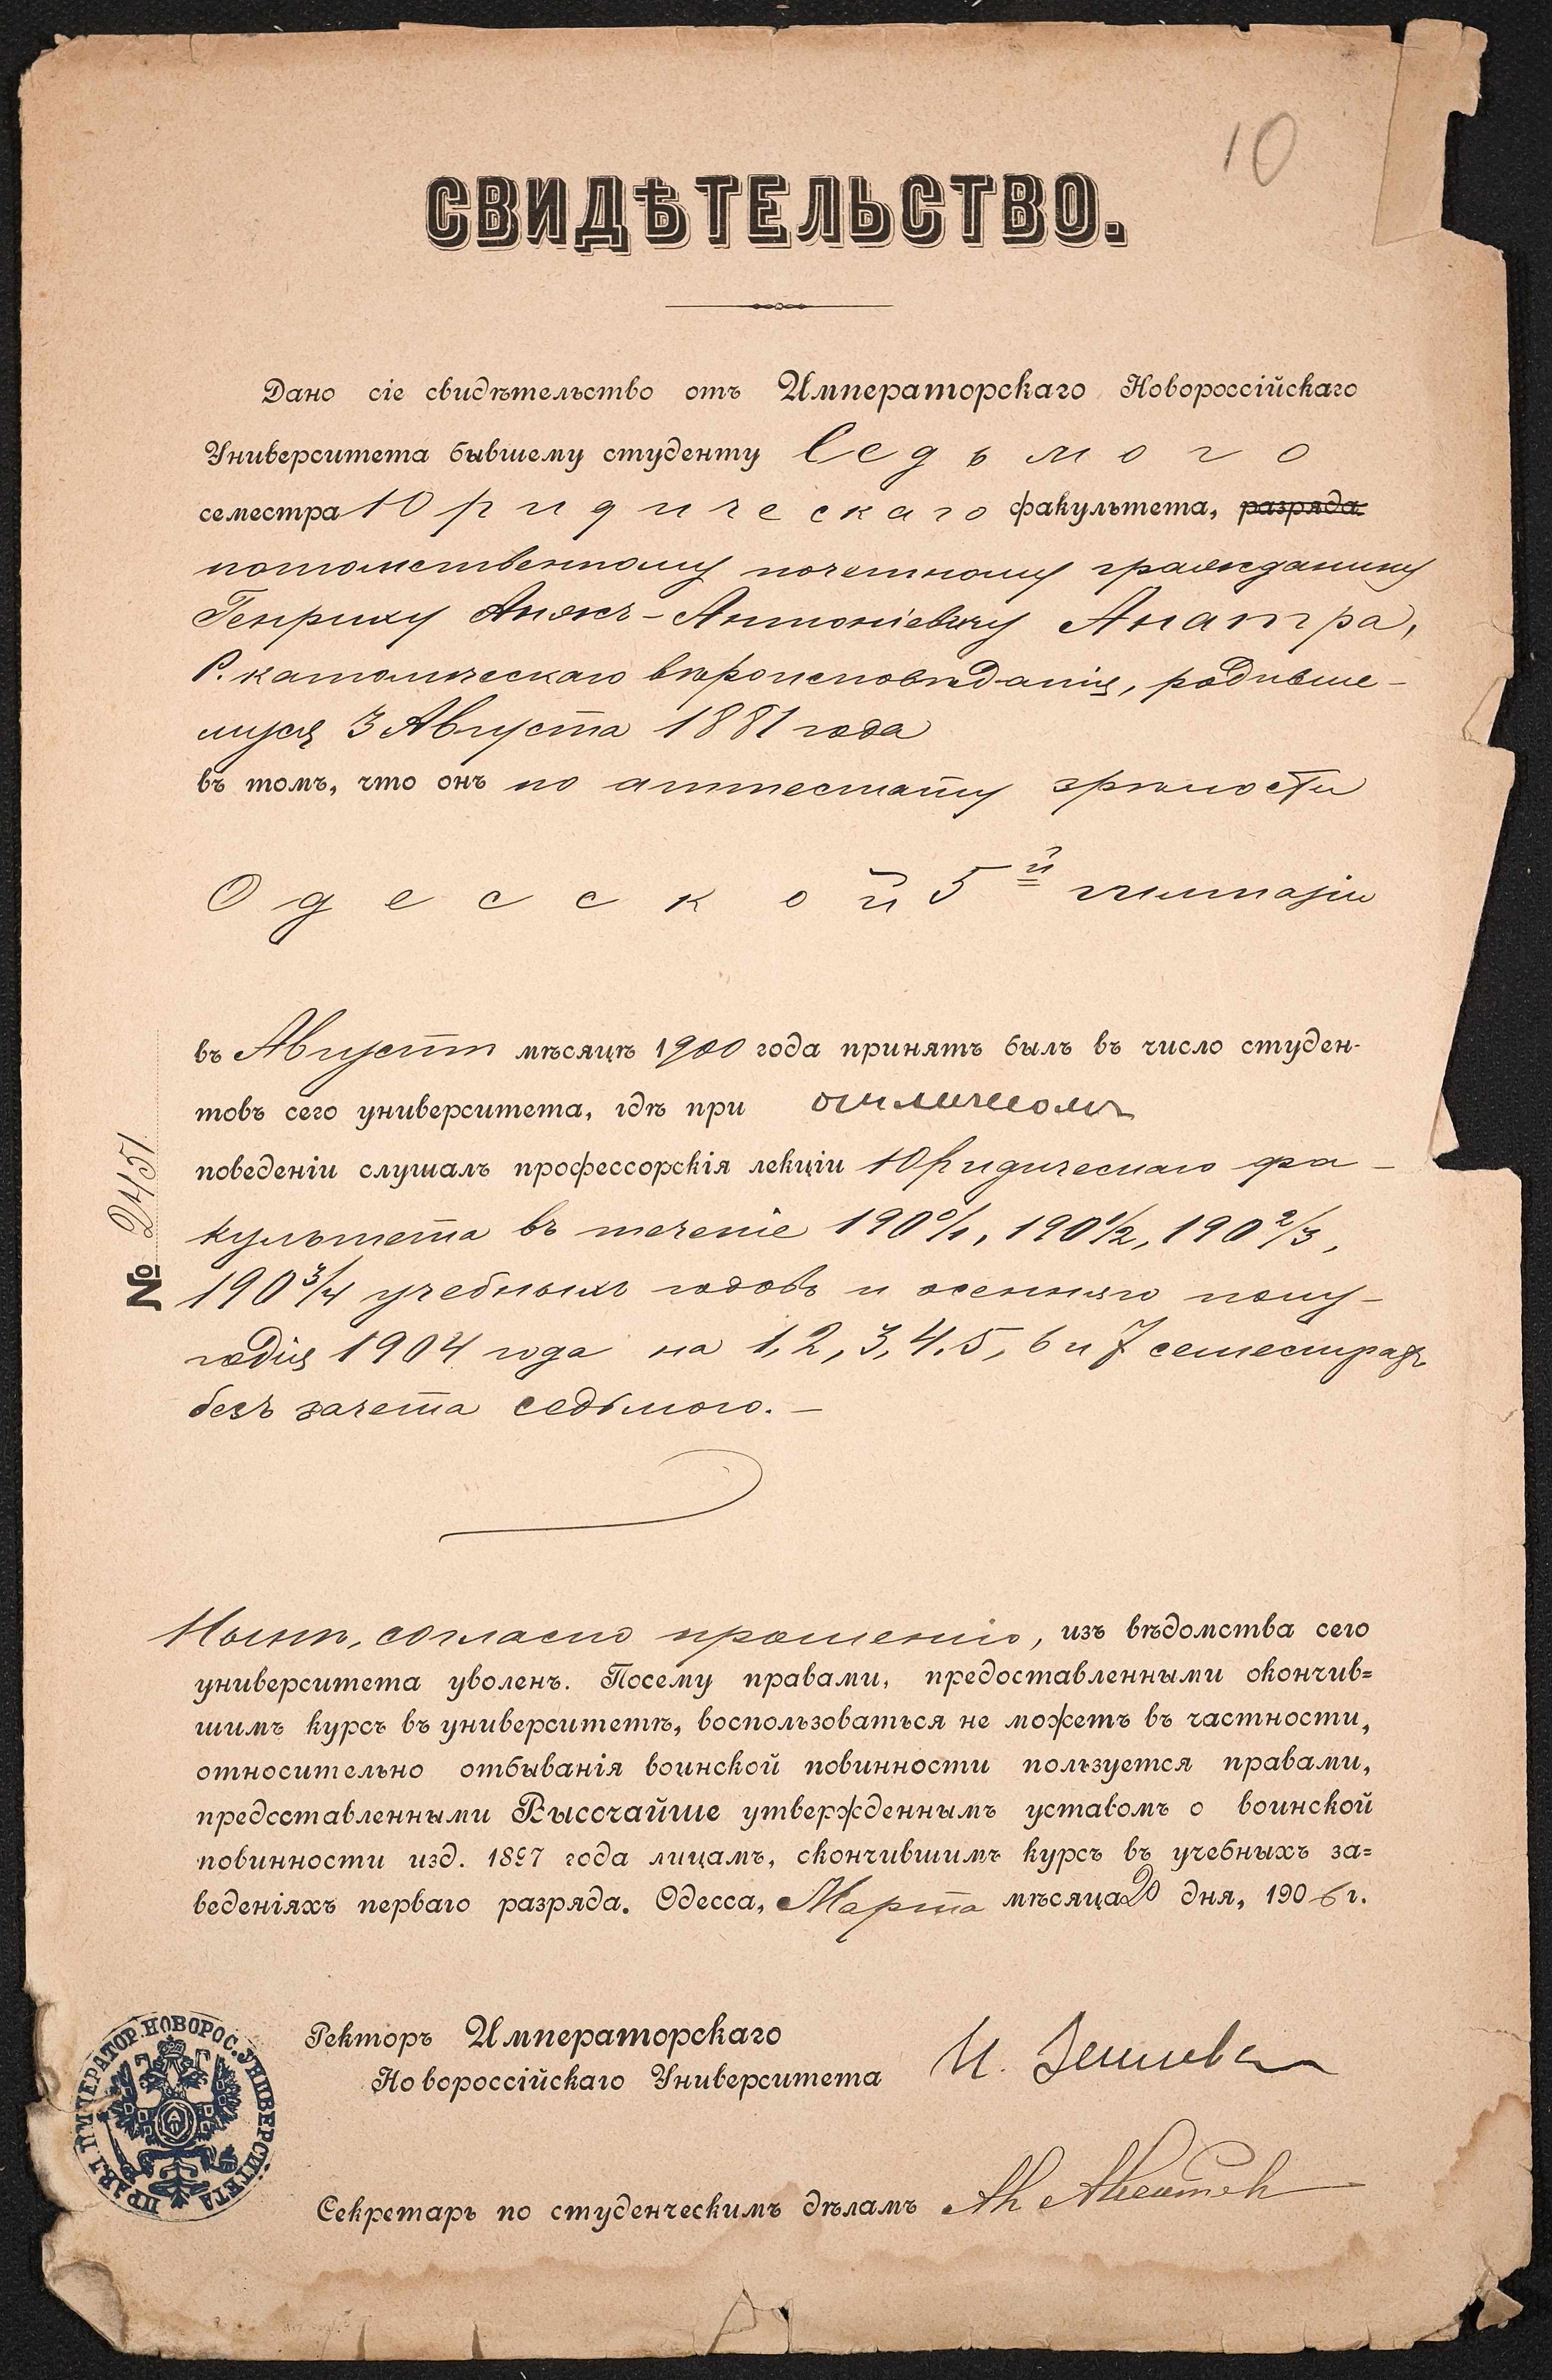 10
СВИДѢТЕЛЬСТВО.
Дано сіе свидѣтельство отъ Императорскаго Новороссійскаго
Университета бывшему студенту Седьмого
семестра Юридическаго факультета, разряда
потомственному почетному гражданину
Генриху Анжъ-Антоніевичу Анатра,
Р. католическаго вѣроисповѣданія, родивше-
муся 3 Августа 1881 года
въ томъ, что онъ по аттестату зрѣлости
Одесской 5й гимназіи
въ Августѣ мѣсяцѣ 1900 года принятъ былъ въ число студен-
товъ сего университета, гдѣ при отличномъ
поведеніи слушалъ профессорскія лекціи Юридическаго фа-
культета въ теченіе 190 0/1, 190 1/2, 190 2/3,
190 3/4 учебныхъ годовъ и осенняго полу-
годія 1904 года на 1, 2, 3, 4, 5, 6 и 7 семестрахъ
безъ зачета седьмого. —
№ 2451
Нынѣ, согласно прошенію, изъ вѣдомства сего
университета уволенъ. Посему правами, предоставленными окончив=
шимъ курсъ въ университетѣ, воспользоваться не можетъ въ частности,
относительно отбыванія воинской повинности пользуется правами,
предоставленными Высочайше утвержденнымъ уставомъ о воинской
повинности изд. 1897 года лицамъ, окончившимъ курсъ въ учебныхъ за=
веденіяхъ перваго разряда. Одесса, Марта мѣсяца 20 дня, 1906 г.
Ректоръ Императорскаго
Новороссійскаго Университета
И.
Секретарь по студенческимъ дѣламъ
ПРАВЛ. ИМПЕРАТОР. НОВОРОС. УНИВЕРСИТЕТА